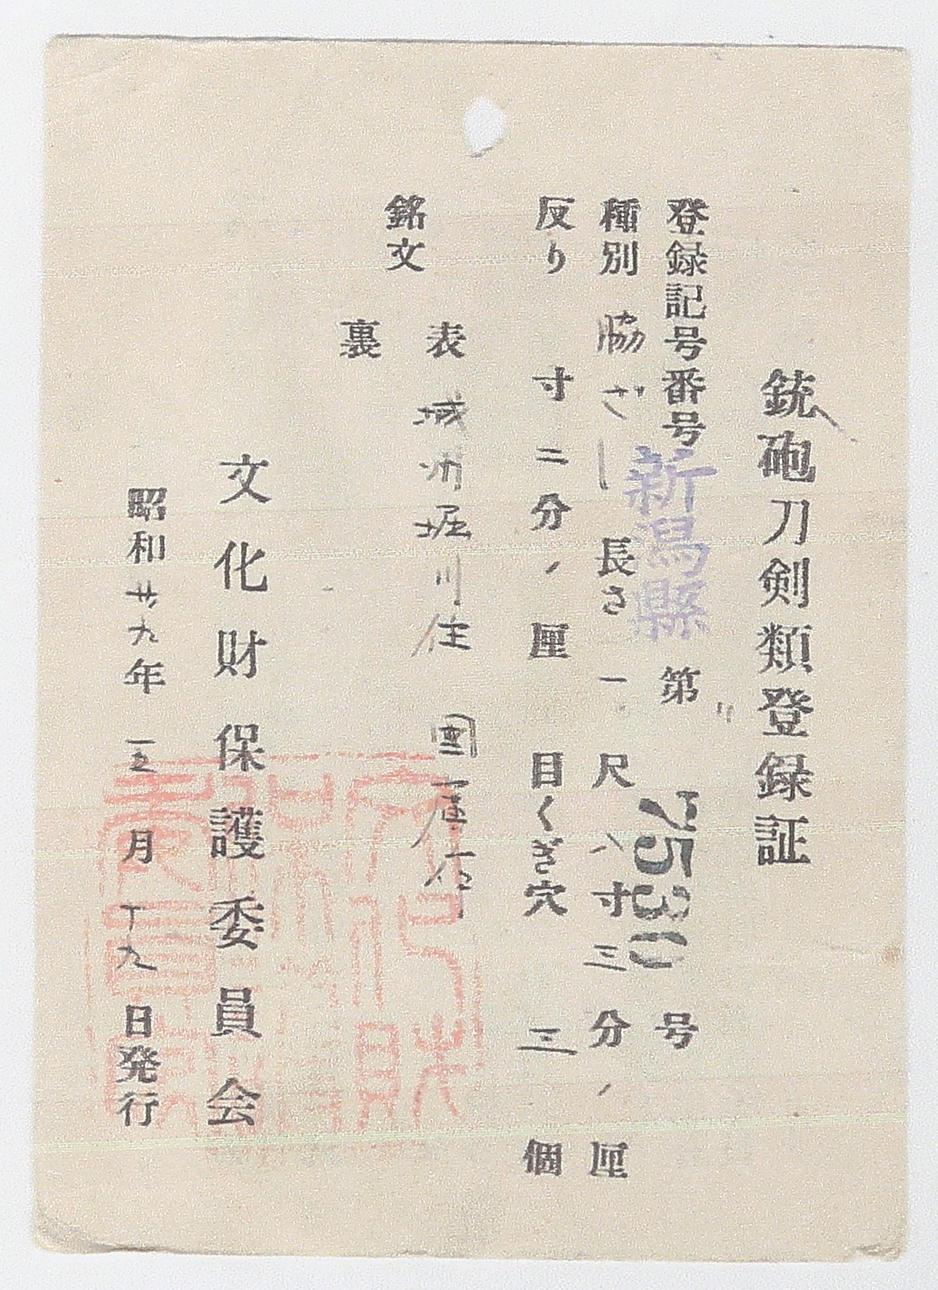 銃砲刀剣類登録証
登録記号番号 新潟縣 第 7530 号
種別 脇ざし 長さ 一尺八寸三分 厘
反り 寸二分 厘 目くぎ穴 三 個
銘文
表 城州堀川住 国広作
裏
文化財保護委員会
昭和廿九年 五月 十九日発行